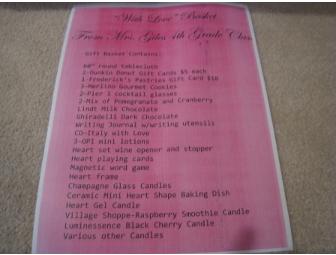 "With Love" Basket
From Mrs. Giles 4th Grade Class
Gift Basket Contains:
60" round tablecloth
2-Dunkin Donut Gift Cards $5 each
1-Frederick's Pastries Gift Card $10
3-Merlino Gourmet Cookies
2-Pier 1 cocktail glasses
2-Mix of Pomegranate and Cranberry
Lindt Milk Chocolate
Ghiradelli Dark Chocolate
Writing Journal w/writing utensils
CD-Italy with Love
3-OPI mini lotions
Heart set wine opener and stopper
Heart playing cards
Magnetic word game
Heart frame
Champagne Glass Candles
Ceramic Mini Heart Shape Baking Dish
Heart Gel Candle
Village Shoppe-Raspberry Smoothie Candle
Luminessence Black Cherry Candle
Various other Candles